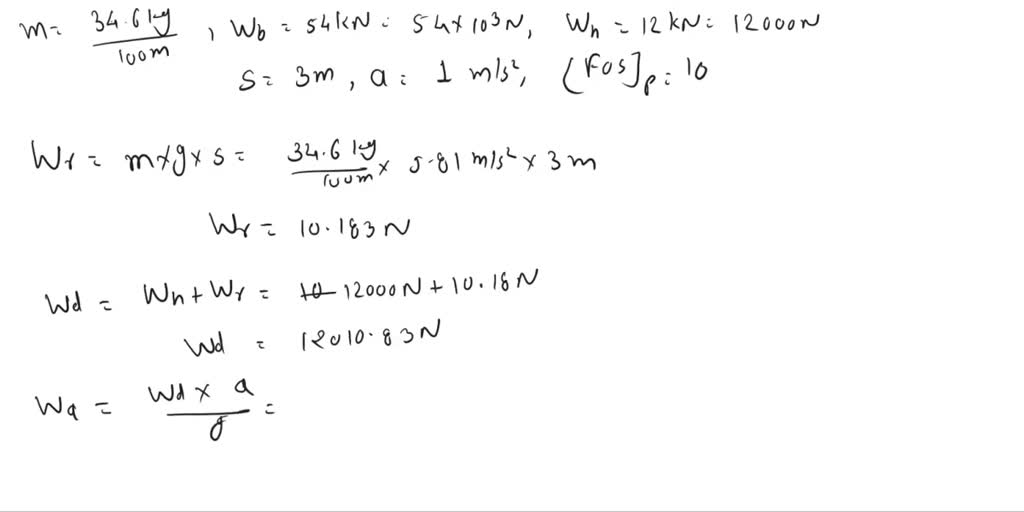 m= 34.6 kg / 100m , Wb = 54kN = 54×10³N, Wh = 12 kN = 12000N
S= 3m, a= 1 m/s², (FOS]p = 10
Wr = m×g×s = 34.6 kg / 100m × 9.81 m/s² × 3m
Wr = 10.183N
Wd = Wh + Wr = 12000N + 10.18N
Wd = 12010.83N
Wa = Wd × a / g =